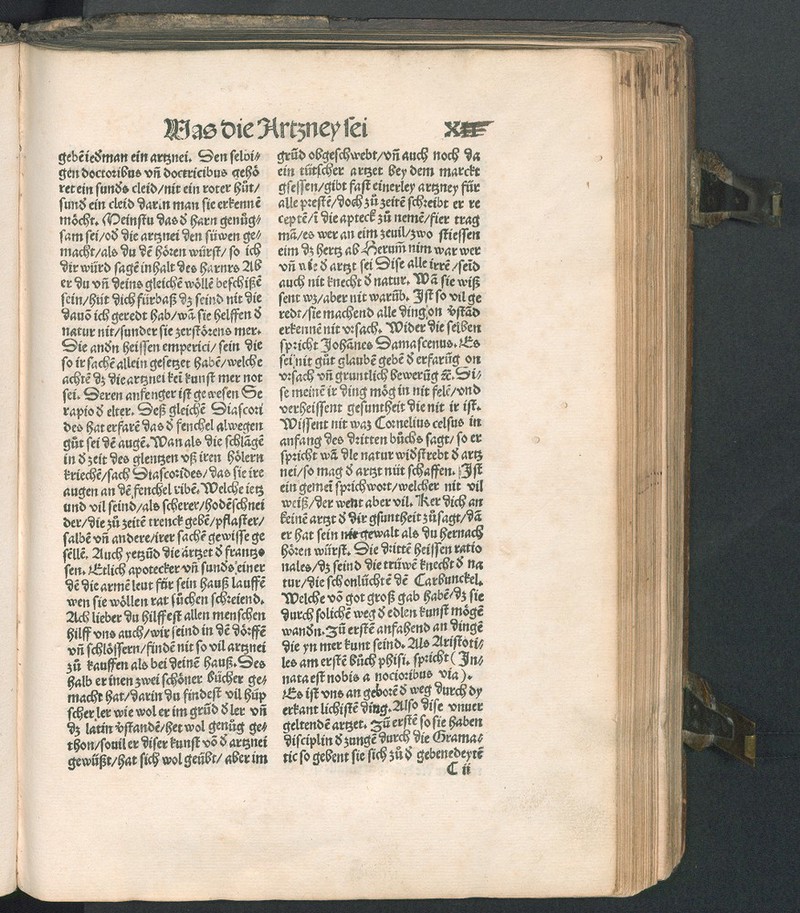 Was die Artzney sei
XII
gebē iedman ein artznei. Den selbi⸗
gen doctoribus vn̄ doctricibus gehö
ret ein sunds cleid/nit ein roter hüt/
sund ein cleid darin man sie erkennē
möcht. Meinstu das d̄ harn genüg⸗
sam sei/od̄ die artznei den süwen ge⸗
macht/als du dē hören würst/so ich
dir würd sagē inhalt des harnrs Ab
er du vn̄ deins gleichē wöllē beschißē
sein/hüt dich fürbaß dz seind nit die
dauō ich geredt hab/wā sie helffen d̄
natur nit/sunder sie zerstörens mer.
Die andn heissen emperici/sein die
so ir sachē allein gesetzet habē/welche
achtē dz die artznei kei kunst mer not
sei. Deren anfenger ist gewesen Se
rapio d̄ elter. Deß gleichē Diascori
des hat erfarē das d̄ fenchel alwegen
güt sei dē augē. Wan als die schlāgē
in d̄ zeit des glentzen vß iren hölern
kriechē/sach Diascorides/das sie ire
augen an dē fenchel ribē. Welche ietz
und vil seind/als scherer/hodēschnei
der/die zü zeitē trenck gebē/pflaster/
salbē vn̄ andere/irer sachē gewisse ge
sellē. Auch yetzūd die ärtzet d̄ frantzo
sen. Etlich apotecker vn̄ sunds einer
dē die armē leut für sein hauß lauffē
wen sie wöllen rat süchen schreiend.
Ach lieber du hilffest allen menschen
hilff vns auch/wir seind in dē dörffē
vn̄ schlössern/findē nit so vil artznei
zü kauffen als bei deinē hauß. Des
halb er inen zwei schöner bücher ge⸗
macht hat/darin du findest vil hüp
scher ler wie wol er im grūd d̄ ler vn̄
dz latin v̄standē/het wol genüg ge⸗
thon/souil er diser kunst vō d̄ artznei
gewüßt/hat sich wol geübt/aber im
grūd obgeschwebt/vn̄ auch noch da
ein tütscher artzet bey dem marckt
gsessen/gibt fast einerley artzney für
alle prestē/doch zü zeitē schreibt er re
ceptē/ī die apteck zü nemē/fier trag
mā/es wer an eim zeuil/zwo stiessen
eim dz hertz ab Herum nim war wer
vn̄ d̄ artzt sei Dise alle irrē/seīd
auch nit knecht d̄ natur. Wā sie wiß
sent wz/aber nit warūb. Jst so vil ge
redt/sie machend alle ding on v̄stād
erkennē nit vrsach. Wider die selben
spricht Johānes Damascenus. Es
sei nit güt glaubē gebē d̄ erfarūg on
vrsach vn̄ gruntlich bewerūg ꝛc. Di⸗
se meinē ir ding mög in nit felē/vnd
verheissent gesuntheit die nit ir ist.
Wissent nit waz Cornelius celsus in
anfang des dritten büchs sagt/so er
spricht wā die natur widstrebt d̄ artz
nei/so mag d̄ artzt nüt schaffen. Jst
ein gemei sprichwort/welcher nit vil
weiß/der went aber vil. Ker dich an
keinē artzt d̄ dir gsuntheit zü sagt/dā
er hat sein nit gewalt als du hernach
hören würst. Die drittē heissen ratio
nales/dz seind die trüwē knecht d̄ na
tur/die schon lüchtē dē Carbunckel.
Welche vō got groß gab habē/dz sie
durch solichē weg d̄ edlen kunst mögē
wandn. Zü erstē anfahend an dingē
die yn mer kunt seind. Als Aristoti⸗
les am erstē büch phisi. spricht (Jn⸗
nata est nobis a nocioribus via).
Es ist vns an geborē d̄ weg durch dy
erkant lichistē ding. Also dise vnuer
geltenden artzet. Zü erstē so sie haben
disciplin d̄ zungē durch die Grama⸗
tic so gebent sie sich zü d̄ gebenedeytē
C ii